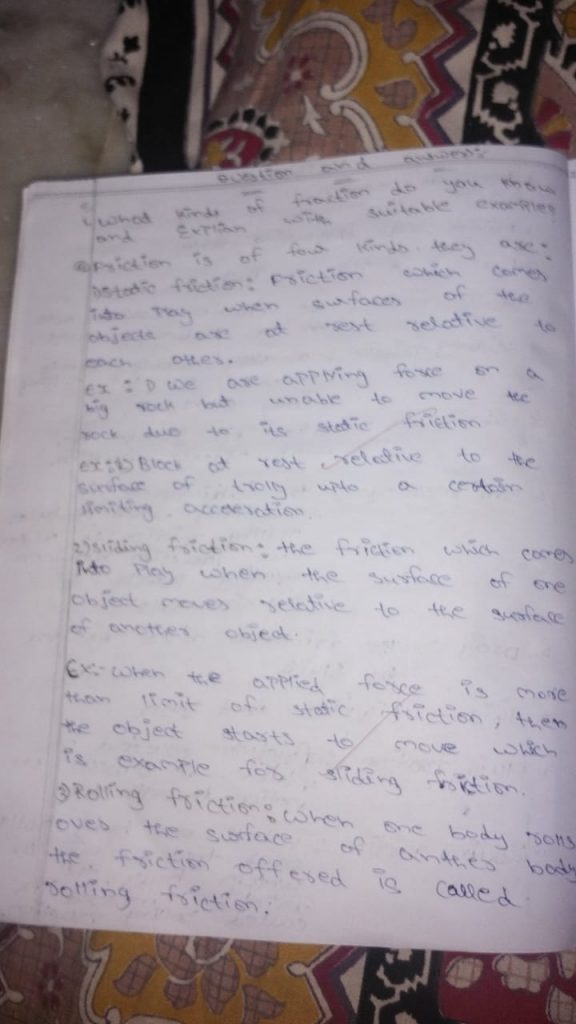 Question and answers:
1) what kinds of fraction do you know
and Explian with suitable examples
A) Friction is of four kinds they are:
1) static friction: Friction which comes
into play when surfaces of the
objects are at rest relative to
each other.
Ex: 1) we are applying force on a
big rock but unable to move the
rock due to its static friction
ex: 2) Block at rest relative to the
surface of trolly upto a certain
limiting acceleration.
2) sliding friction: the friction which comes
into play when the surface of one
object moves relative to the surface
of another object.
Ex:- when the applied force is more
than limit of static friction, then
the object starts to move which
is example for sliding friction.
3) Rolling friction: when one body rolls
over the surface of another body
the friction offered is called
rolling friction.